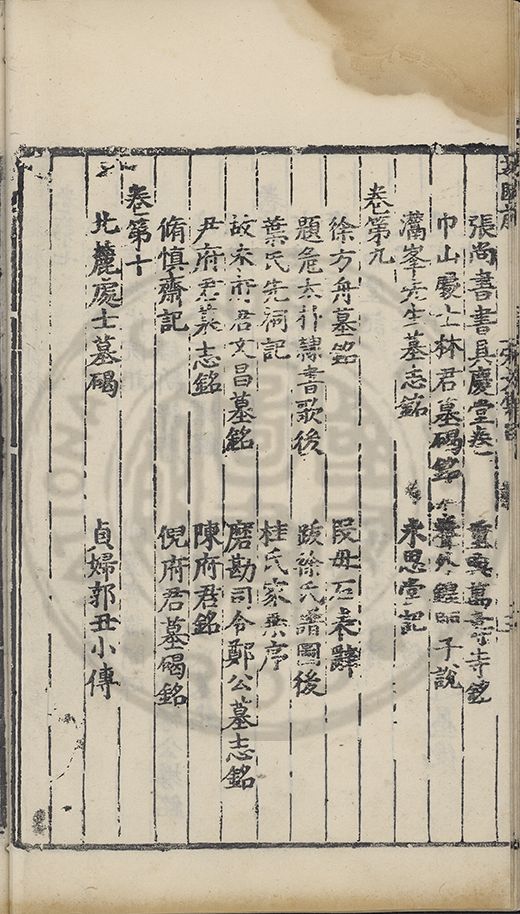 張尚書書具慶堂奏
巾山處士林君墓碣銘
灊峯先生墓志銘 朱思堂記
卷第九
徐方舟墓銘 段毋石表辭
題危太朴隸書歌後 跋徐氏譜圖後
葉氏先祠記 桂氏家乘序
故宋府君文昌墓銘 磨勘司令鄭公墓志銘
尹府君墓志銘 陳府君銘
脩慎齋記 倪府君墓碣銘
卷第十
北麓處士墓碣 貞婦郭丑小傳